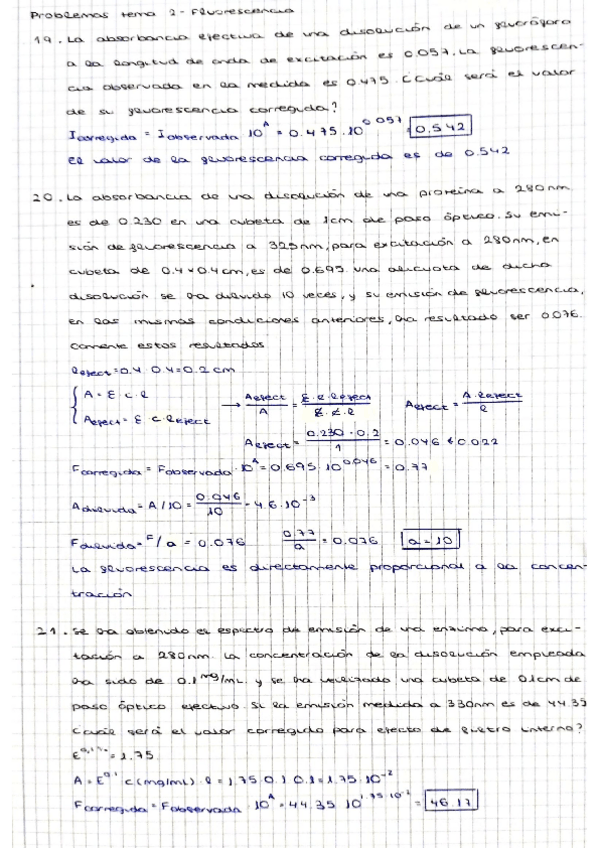 Problemas tema 2 - Fluorescencia
19. La absorbancia efectiva de una disolución de un fluoróforo
a la longitud de onda de excitación es 0.057. La fluorescen-
cia observada en la medida es 0.475. ¿Cuál será el valor
de su fluorescencia corregida?
Icorregida = Iobservada · 10^A = 0.475 · 10^0.057 = 0.542
El valor de la fluorescencia corregida es de 0.542
20. La absorbancia de una disolución de una proteína a 280nm
es de 0.230 en una cubeta de 1cm de paso óptico. Su emi-
sión de fluorescencia a 325nm, para excitación a 280nm, en
cubeta de 0.4x0.4cm, es de 0.695. Una alícuota de dicha
disolución se ha diluido 10 veces, y su emisión de fluorescencia,
en las mismas condiciones anteriores, ha resultado ser 0.076.
Comente estos resultados
lefect = 0.4 · 0.4 = 0.2cm
A = ε · c · l
Aefect = ε · c · lefect → Aefect/A = ε · c · lefect / ε · c · l Aefect = A · lefect / l
Aefect = 0.230 · 0.2 / 1 = 0.046 ≮ 0.022
Fcorregida = Fobservada · 10^A = 0.695 · 10^0.046 = 0.77
Adiluida = A/10 = 0.046/10 = 4.6 · 10^-3
Fdiluida = F/a = 0.076 0.77/a = 0.076 a = 10
La fluorescencia es directamente proporcional a la concen-
tración
21. Se ha obtenido el espectro de emisión de una enzima, para exci-
tación a 280nm. La concentración de la disolución empleada
ha sido de 0.1 mg/mL y se ha utilizado una cubeta de 0.1cm de
paso óptico efectivo. Si la emisión medida a 330nm es de 44.35
¿cuál será el valor corregido para efecto de filtro interno?
ε^0.1% = 1.75
A = ε^0.1 · c(mg/mL) · l = 1.75 · 0.1 · 0.1 = 1.75 · 10^-2
Fcorregida = Fobservada · 10^A = 44.35 · 10^1.75·10^-2 = 46.17